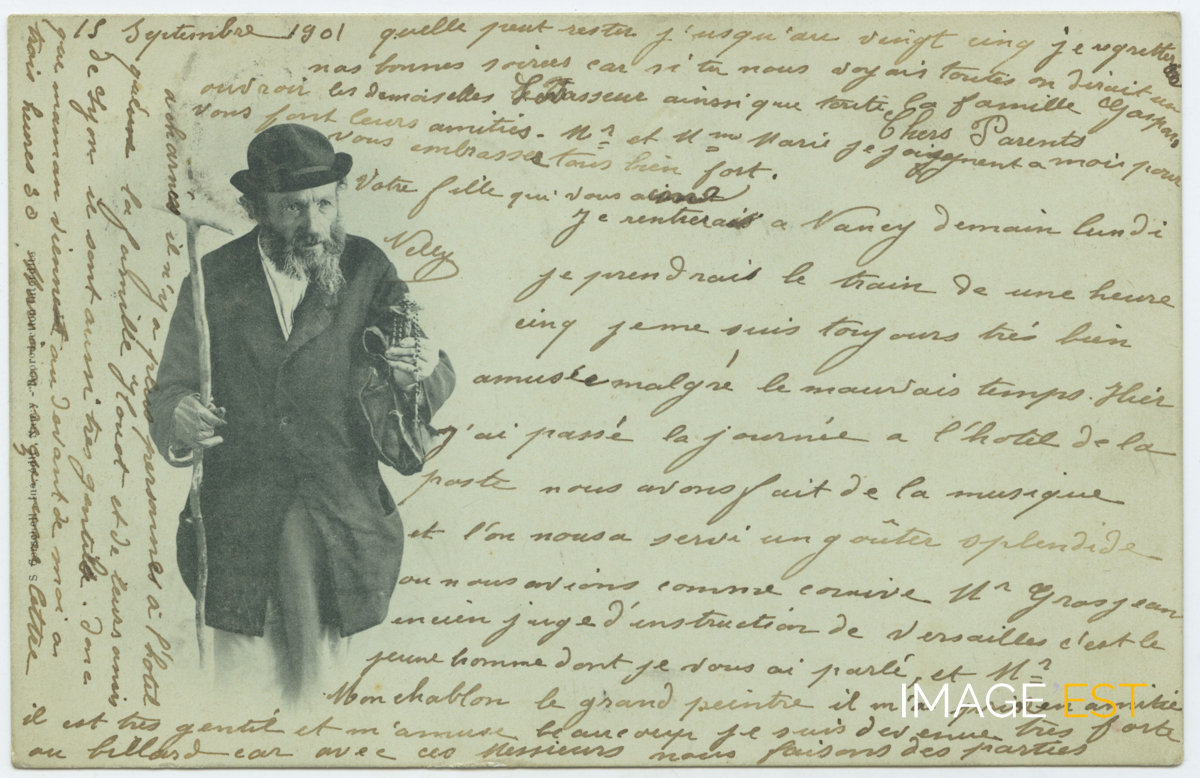 15 Septembre 1901
Chers Parents
Je rentrerais a Nancy demain lundi
je prendrais le train de une heure
cinq je me suis toujours très bien
amusée malgré le mauvais temps. Hier
j'ai passé la journée a l'hotel de la
poste nous avons fait de la musique
et l'on nous a servi un goûter splendide
ou nous avions comme convive Mr Grosjean
encien juge d'instruction de Versailles c'est le
jeune homme dont je vous ai parlé, et Mr
Monchablon le grand peintre il m'a
en amitié
il est très gentil et m'amuse beaucoup je suis devenue très forte
au billard car avec ces Messieurs nous faisons des parties
acharnés il n'y a plus personnes à l'hotel
la famille et de leurs amis
de Lyon ils sont aussi très gentils. donc
que maman viennent au devant de moi a
trois heures 30
quelle peut rester j'usqu'au vingt cinq je regrette
nos bonnes soirées car si tu nous voyais toutes on dirait un
ouvroir les demoiselles ainsi que toute la famille
vous font leurs amitiés. Mr et Mme Marie se joignent a moi pour
vous embrasser tous bien fort.
Votre fille qui vous aime
Nelly
IMAGE EST